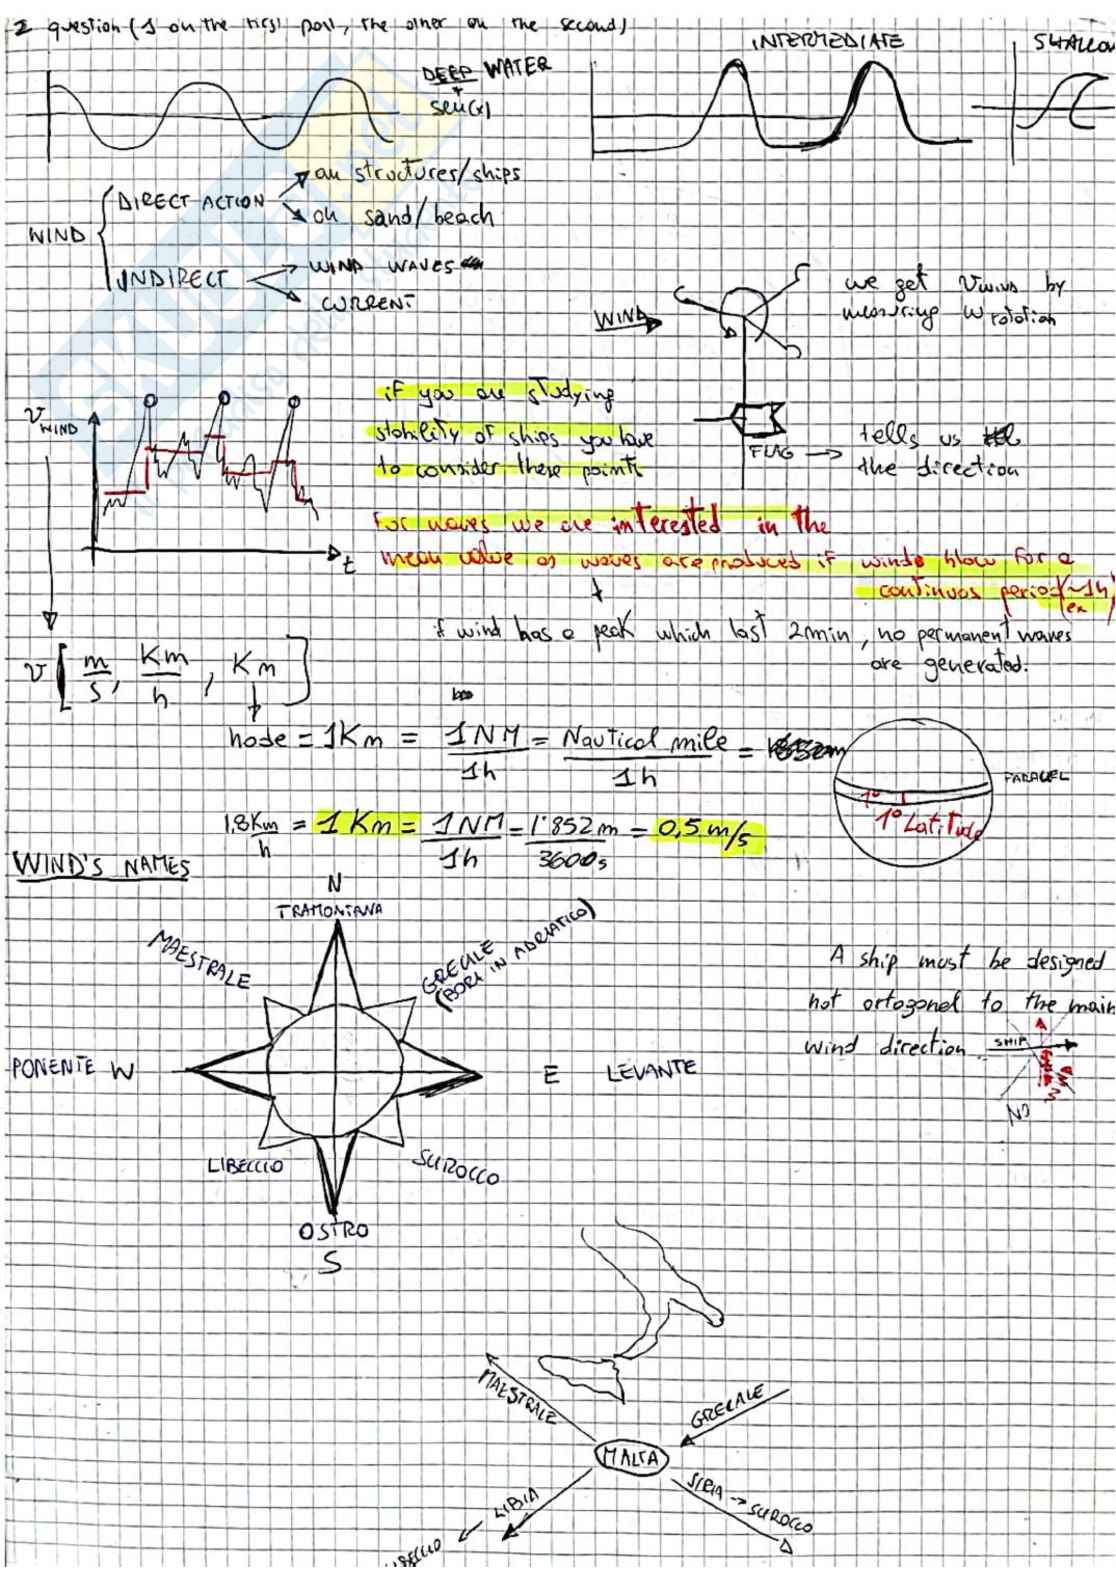 2 question (1 on the first part, the other on the second)
INTERMEDIATE
SHALLOW
DEEP WATER
sen(x)
WIND
DIRECT ACTION
on structures/ships
on sand/beach
INDIRECT
WIND WAVES
CURRENT
WIND
we get VWIND by
measuring ω rotation
FLAG → tells us
the direction
VWIND
t
if you are studying
stability of ships you have
to consider these points
For waves we are interested in the
mean value as waves are produced if winds blow for a
continuos period (~1h
ex)
if wind has a peak which last 2min, no permanent waves
are generated.
v [m/s, Km/h, Kn]
node = 1Kn = 1NM/1h = Nautical mile/1h = 1852m
1,8Km/h = 1Kn = 1NM/1h = 1'852m/3600s = 0,5m/s
PARALLEL
1°
1° Latitude
WIND'S NAMES
N
TRAMONTANA
MAESTRALE
GRECALE
(BORA IN ADRIATICO)
PONENTE W
E LEVANTE
LIBECCIO
SCIROCCO
OSTRO
S
A ship must be designed
not ortogonal to the main
wind direction.
SHIP
NO
MAESTRALE
GRECALE
MALTA
LIBIA
LIBECCIO
SIRIA → SCIROCCO